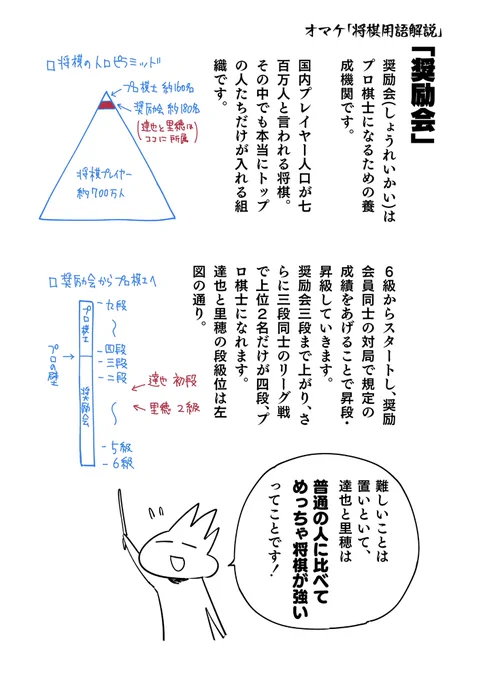 オマケ「将棋用語解説」
「奨励会」
奨励会(しょうれいかい)は
プロ棋士になるための養
成機関です。
国内プレイヤー人口が七
百万人と言われる将棋。
その中でも本当にトップ
の人たちだけが入れる組
織です。
□将棋の人口ピラミッド
プロ棋士 約160名
奨励会 約180名
(達也と里穂は
ココに所属)
将棋プレイヤー
約700万人
6級からスタートし、奨励
会員同士の対局で規定の
成績をあげることで昇段・
昇級していきます。
奨励会三段まで上がり、さ
らに三段同士のリーグ戦
で上位2名だけが四段、プ
ロ棋士になれます。
達也と里穂の段級位は左
図の通り。
□奨励会からプロ棋士へ
プロ棋士
奨励会
プロの壁
-九段
-四段
-三段
-二段
達也 初段
里穂 2級
-5級
-6級
難しいことは
置いといて、
達也と里穂は
普通の人に比べて
めっちゃ将棋が強い
ってことです!